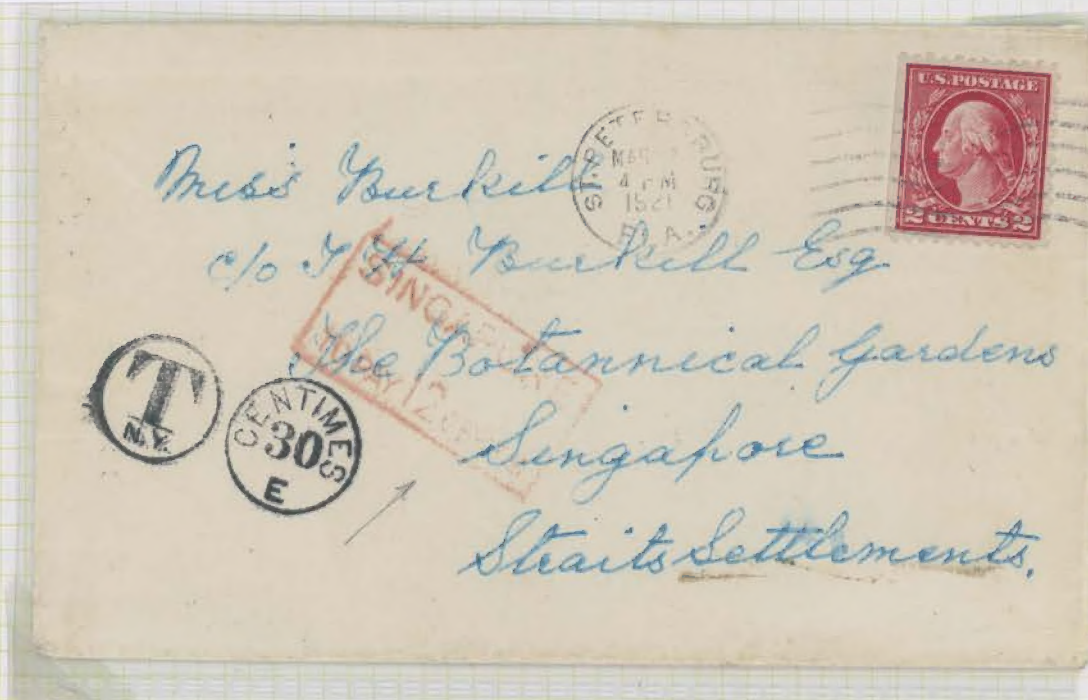 U.S. POSTAGE
2 CENTS 2
ST. PETERSBURG
4 PM
1921
FLA.
Miss Burkill
c/o I H Burkill Esq
The Botannical Gardens
Singapore
Straits Settlements.
SINGAPORE
TO PAY 12
T
N.Y.
CENTIMES
30
E